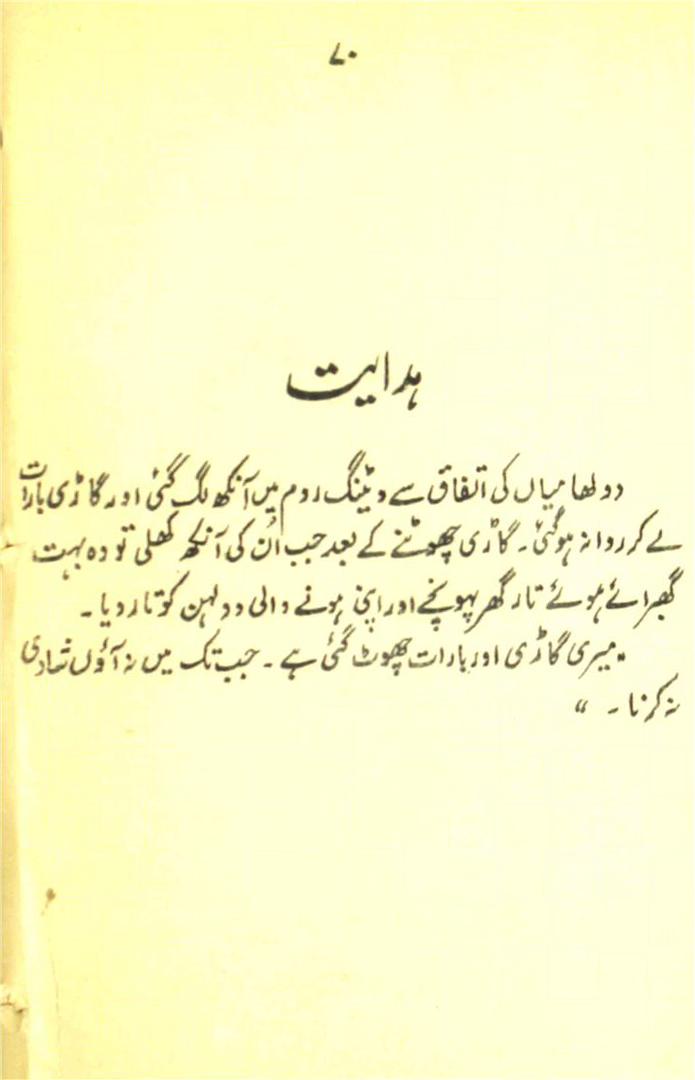 ۷۰
ہدایت
دولھا میاں کی اتفاق سے ویٹنگ روم میں آنکھ لگ گئی اور گاڑی بارات
لے کر روانہ ہوگئی۔ گاڑی چھوٹنے کے بعد جب اُن کی آنکھ کھلی تو وہ بہت
گھبرائے ہوئے تار گھر پہونچے اور اپنی ہونے والی دولہن کو تار دیا۔
"میری گاڑی اور بارات چھوٹ گئی ہے۔ جب تک میں نہ آؤں شادی
نہ کرنا۔"